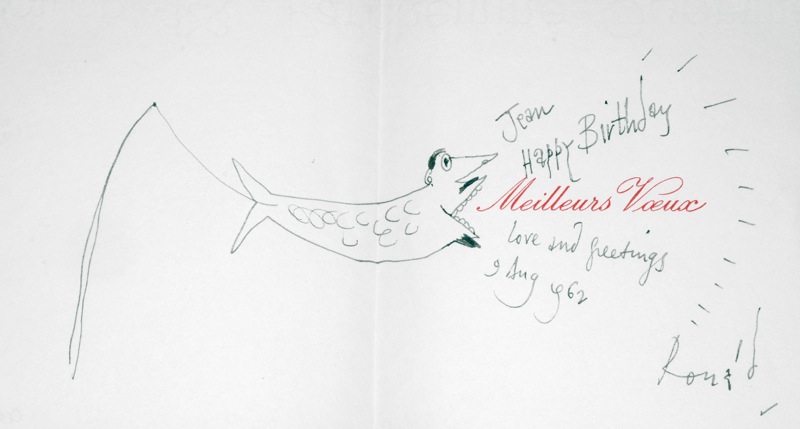 Jean
Happy Birthday
Meilleurs Vœux
Love and greetings
9 Aug 1962
Ronald